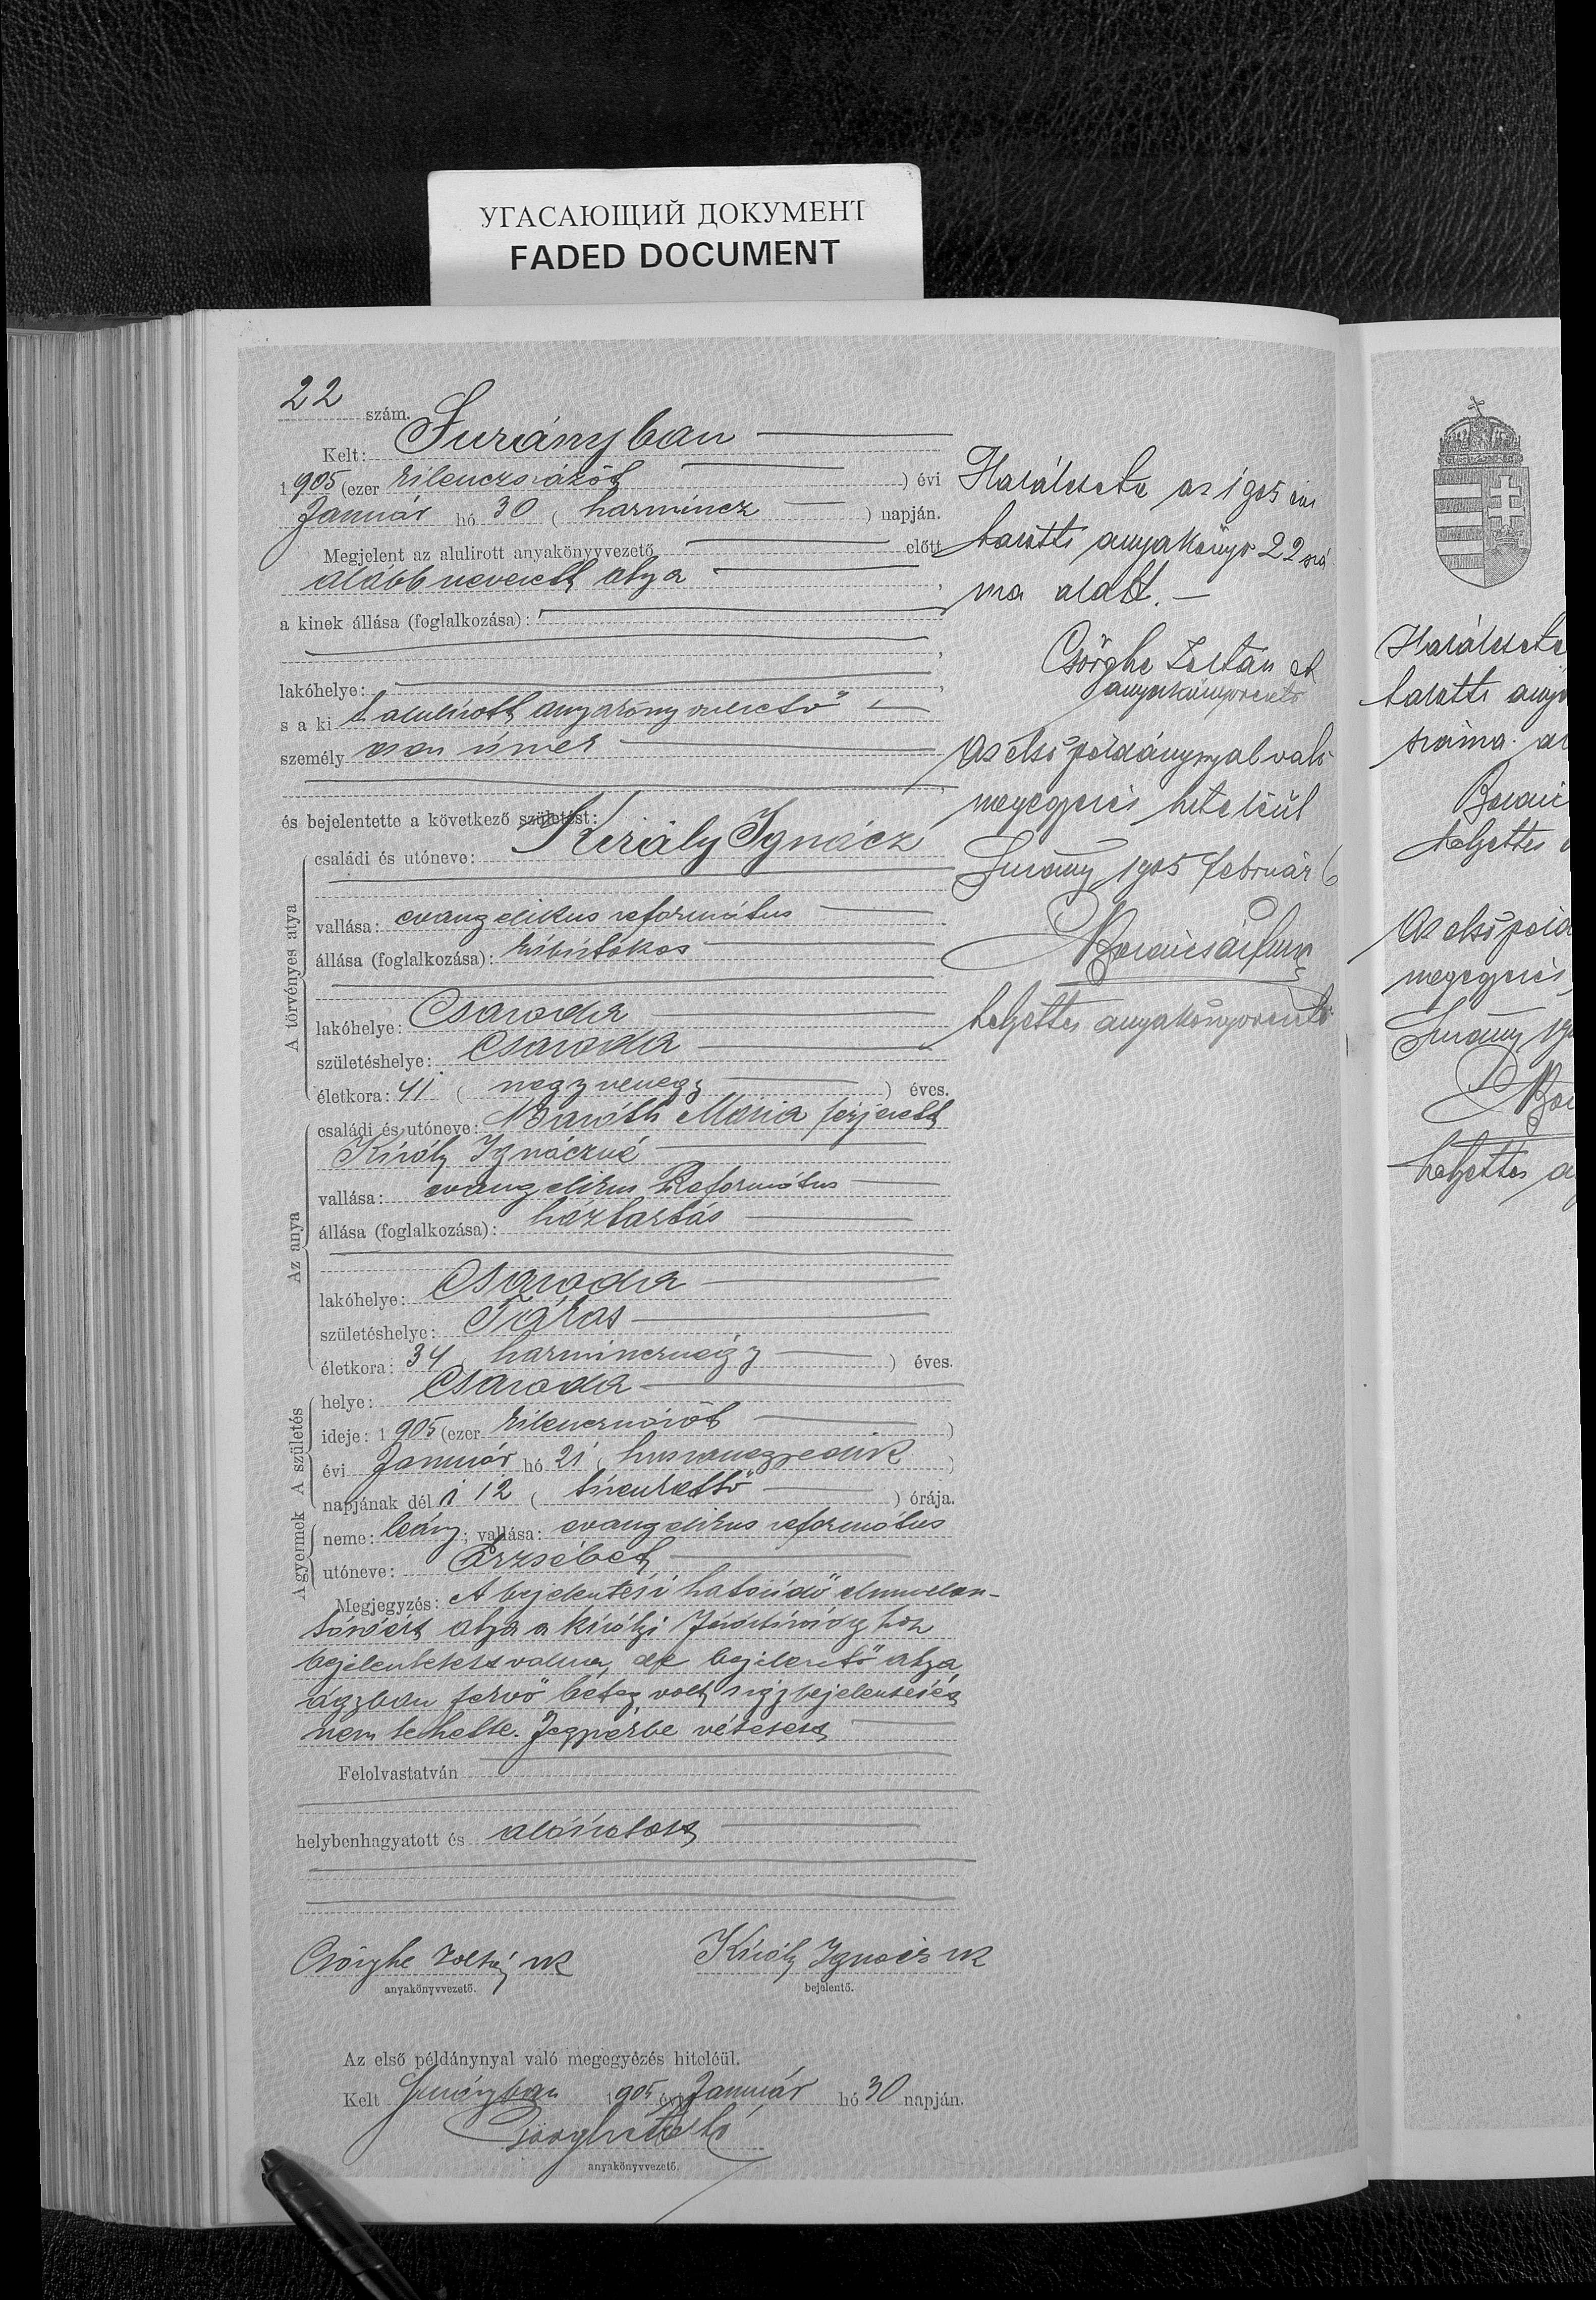 УГАСАЮЩИЙ ДОКУМЕНТ
FADED DOCUMENT
22 szám.
Kelt: Surányban
1905 (ezer kilenczszázöt ) évi
Január hó 30 ( harmincz ) napján.
Megjelent az alulirott anyakönyvvezető előtt
alább nevezett atya ,
a kinek állása (foglalkozása):
lakóhelye:
s a ki t alulirott anyakönyvvezető
személy
és bejelentette a következő születést:
A törvényes atya
családi és utóneve: Király Ignácz
vallása: evangelikus református
állása (foglalkozása): kisbirtokos
lakóhelye: Csaroda
születéshelye: Csaroda
életkora: 41 ( negyvenegy ) éves.
Az anya
családi és utóneve: Baráth Mária férjezett
Király Ignáczné
vallása: evangelikus Református
állása (foglalkozása): háztartás
lakóhelye: Csaroda
születéshelye: Tákos
életkora: 34 ( harmincznégy ) éves.
A születés
helye: Csaroda
ideje: 1905 (ezer kilenczszázöt )
évi Január hó 21 ( huszonegyedik )
napjának dél i 12 ( tizenkettő ) órája.
A gyermek
neme: leány; vallása: evangelikus református
utóneve: Erzsébet
Megjegyzés: A bejelentési határidő elmulasz-
tásáért atya a királyi Járásbírósághoz
bejelentetett volna, de bejelentő atya
ágyban fekvő beteg volt s így bejelentését
nem tehette. Jegyzékbe vétetett
Felolvastatván
helybenhagyatott és aláíratott
Csörghe Zoltán sk
anyakönyvvezető.
Király Ignácz sk
bejelentő.
Az első példánynyal való megegyézés hiteléül.
Kelt Surányban 1905 évi Január hó 30 napján.
Csörghe Zoltán
anyakönyvvezető.
Haláleset az 1905 évi
halotti anyakönyv 22 szá
ma alatt.
Csörghe Zoltán sk
anyakönyvvezető
Az első példánynyal való
megegyezés hiteléül
Surány 1905 február 6
helyettes anyakönyvvezető
Haláleset
halotti anya
száma al
helyettes
Az első péld
megegyezés
Surány 19
helyettes a